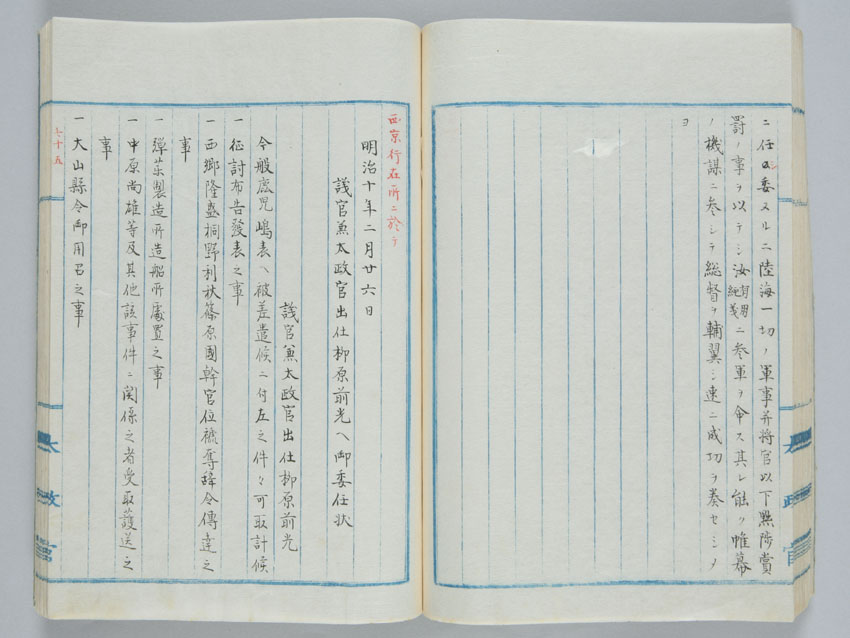 ニ任シ委スルニ陸海一切ノ軍事并将官以下黜陟賞
罰ノ事ヲ以テシ汝有朋純義ニ参軍ヲ命ス其レ能ク帷幕
ノ機謀ニ参シテ総督ヲ輔翼シ速ニ成功ヲ奏セシメ
ヨ
西京行在所ニ於テ
明治十年二月廿六日
議官兼太政官出仕柳原前光ヘ御委任状
議官兼太政官出仕柳原前光
今般鹿児嶋表ヘ被差遣候ニ付左之件々可取計候
一征討布告發表之事
一西郷隆盛桐野利秋篠原國幹官位褫奪辞令傳達之
事
一弾薬製造所造船所處置之事
一中原尚雄等及其他該事件ニ関係之者受取護送之
事
一大山縣令御用召之事
七十五
太政官
太政官